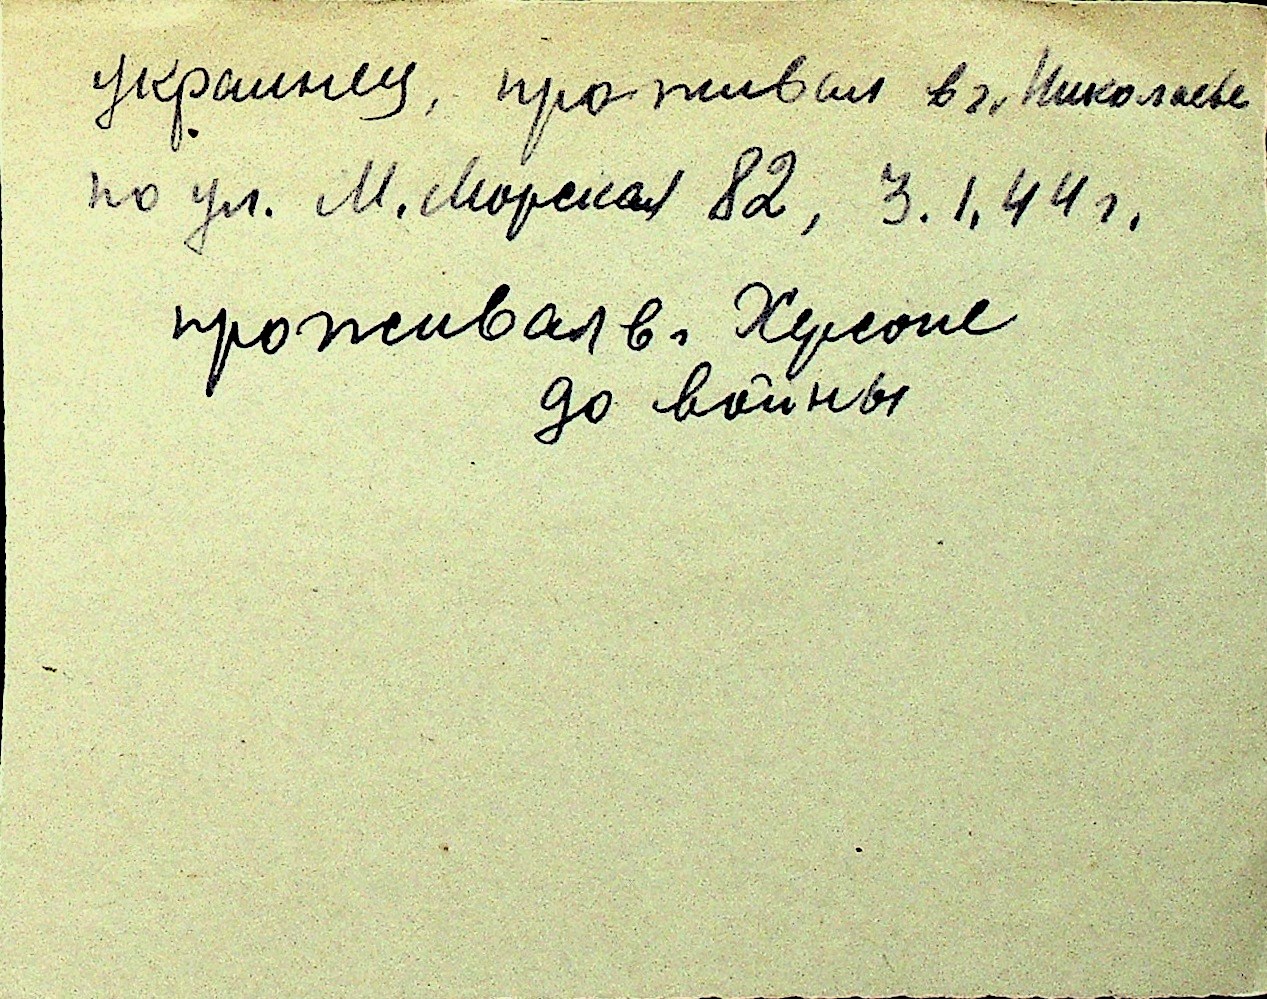 украинец, проживал в г. Николаеве
по ул. М. Морская 82, 3.1.44 г.
проживал в г. Херсоне
до войны